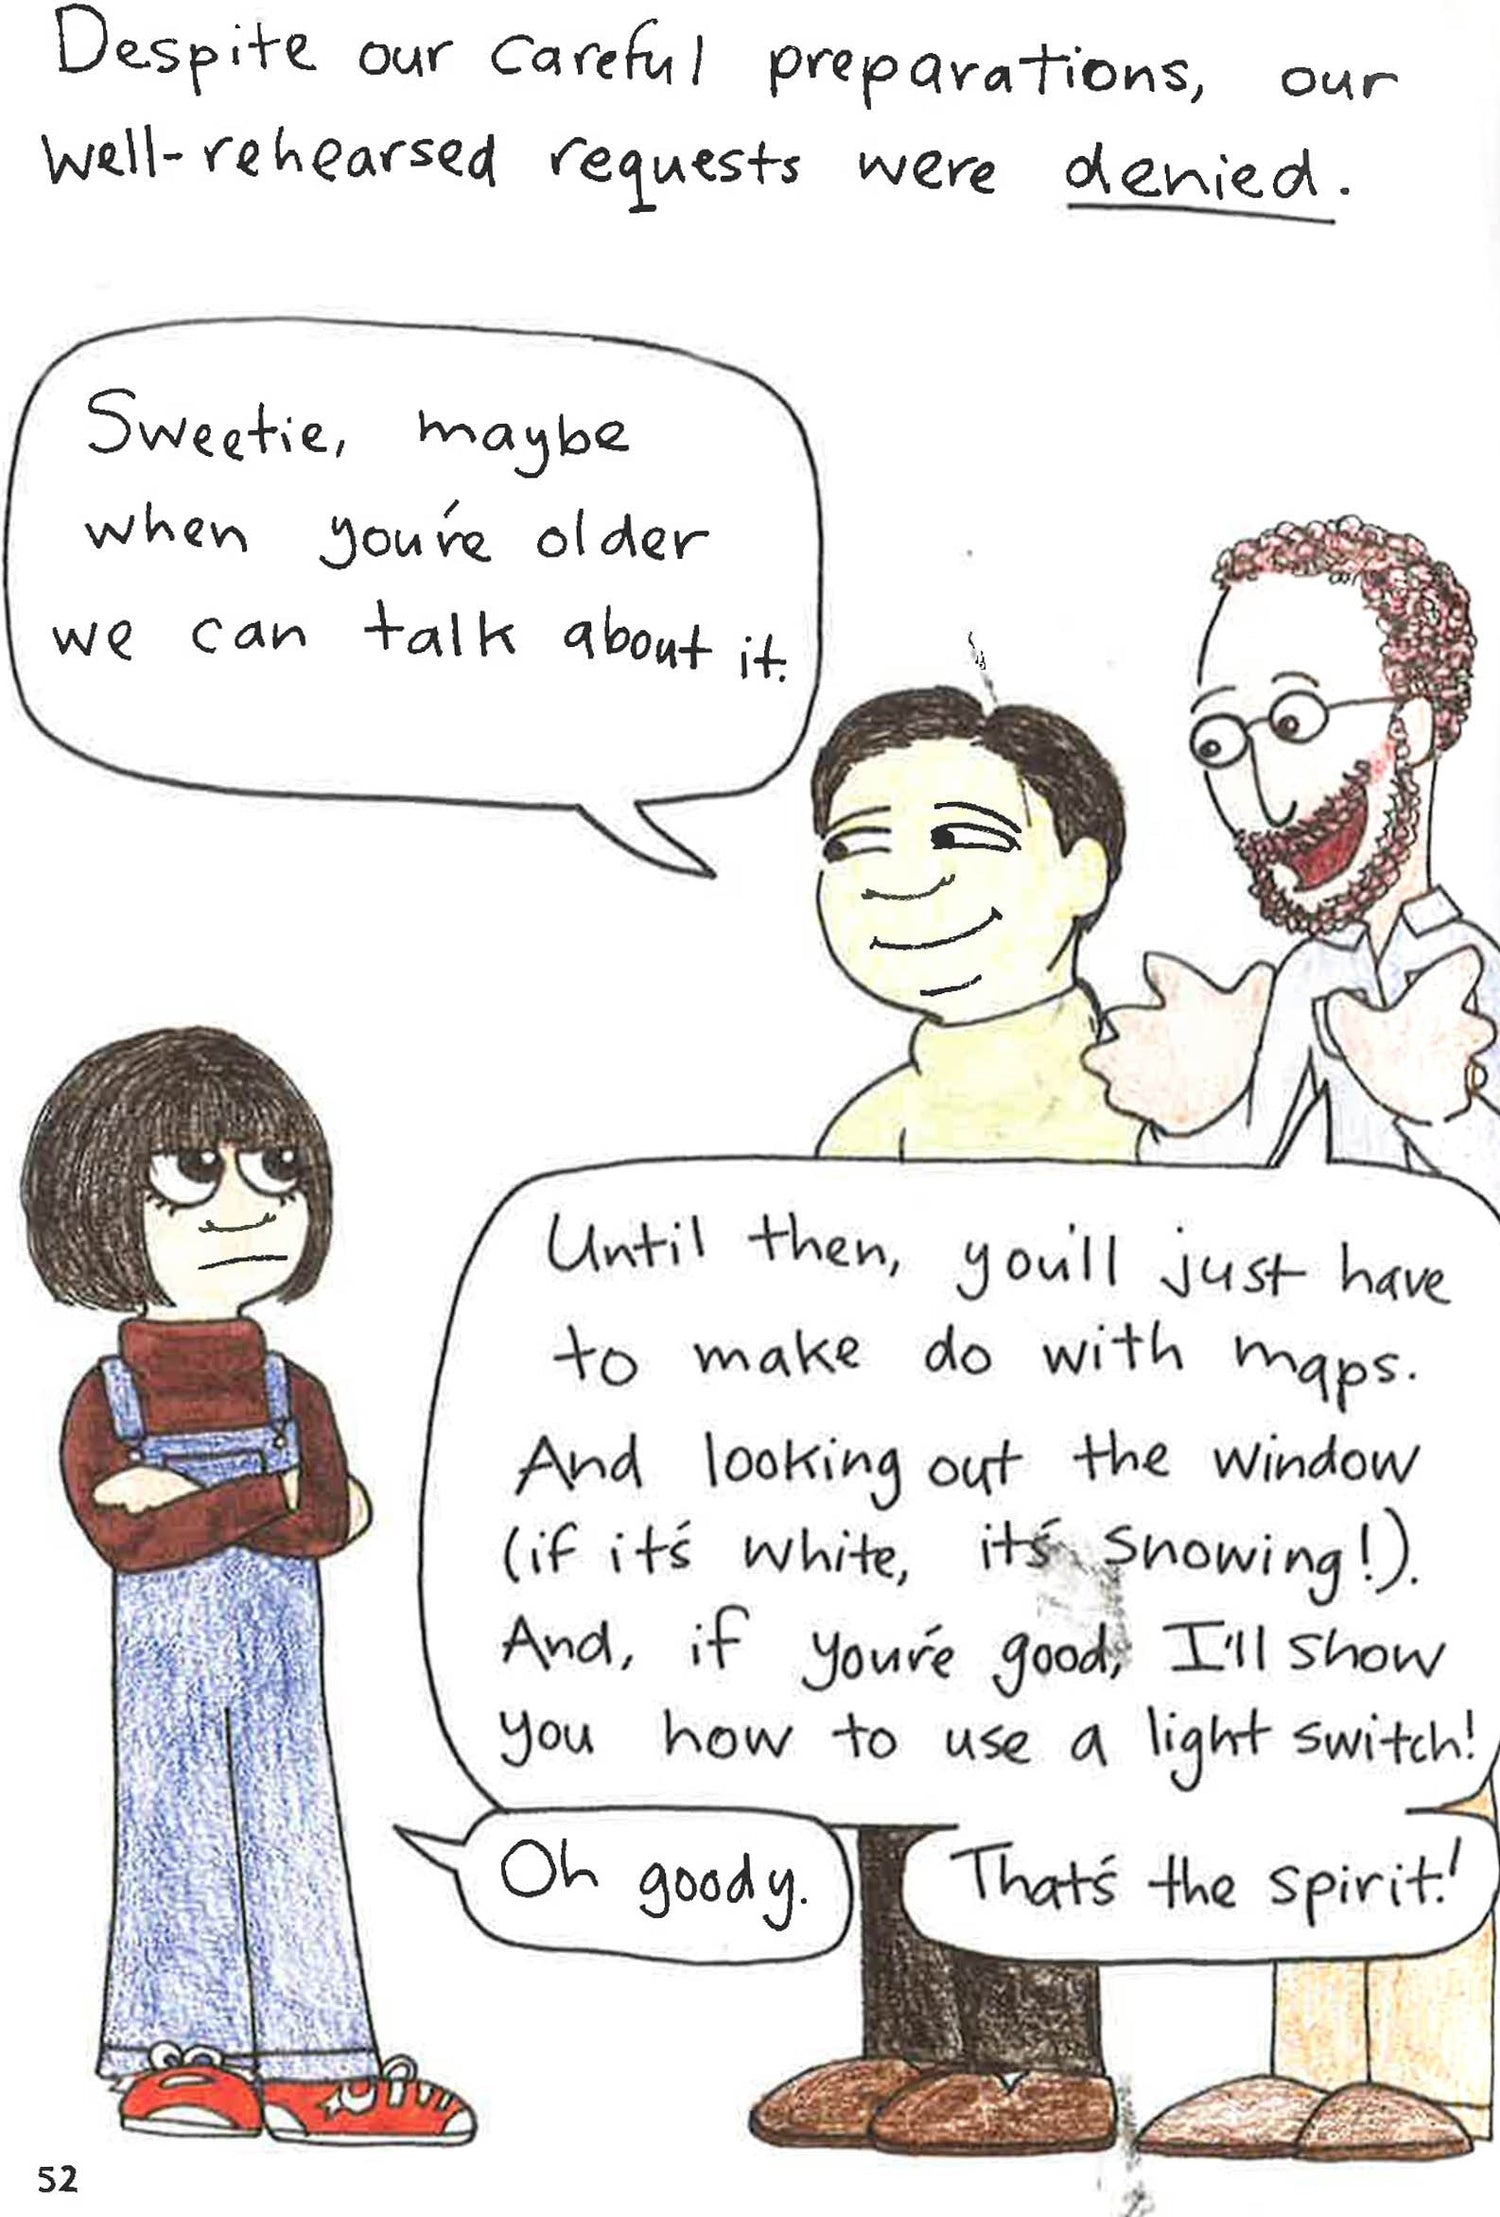 Despite our careful preparations, our
well-rehearsed requests were denied.
Sweetie, maybe
when you're older
we can talk about it.
Until then, you'll just have
to make do with maps.
And looking out the window
(if it's white, it's snowing!).
And, if you're good, I'll show
you how to use a light switch!
Oh goody.
That's the spirit!
52